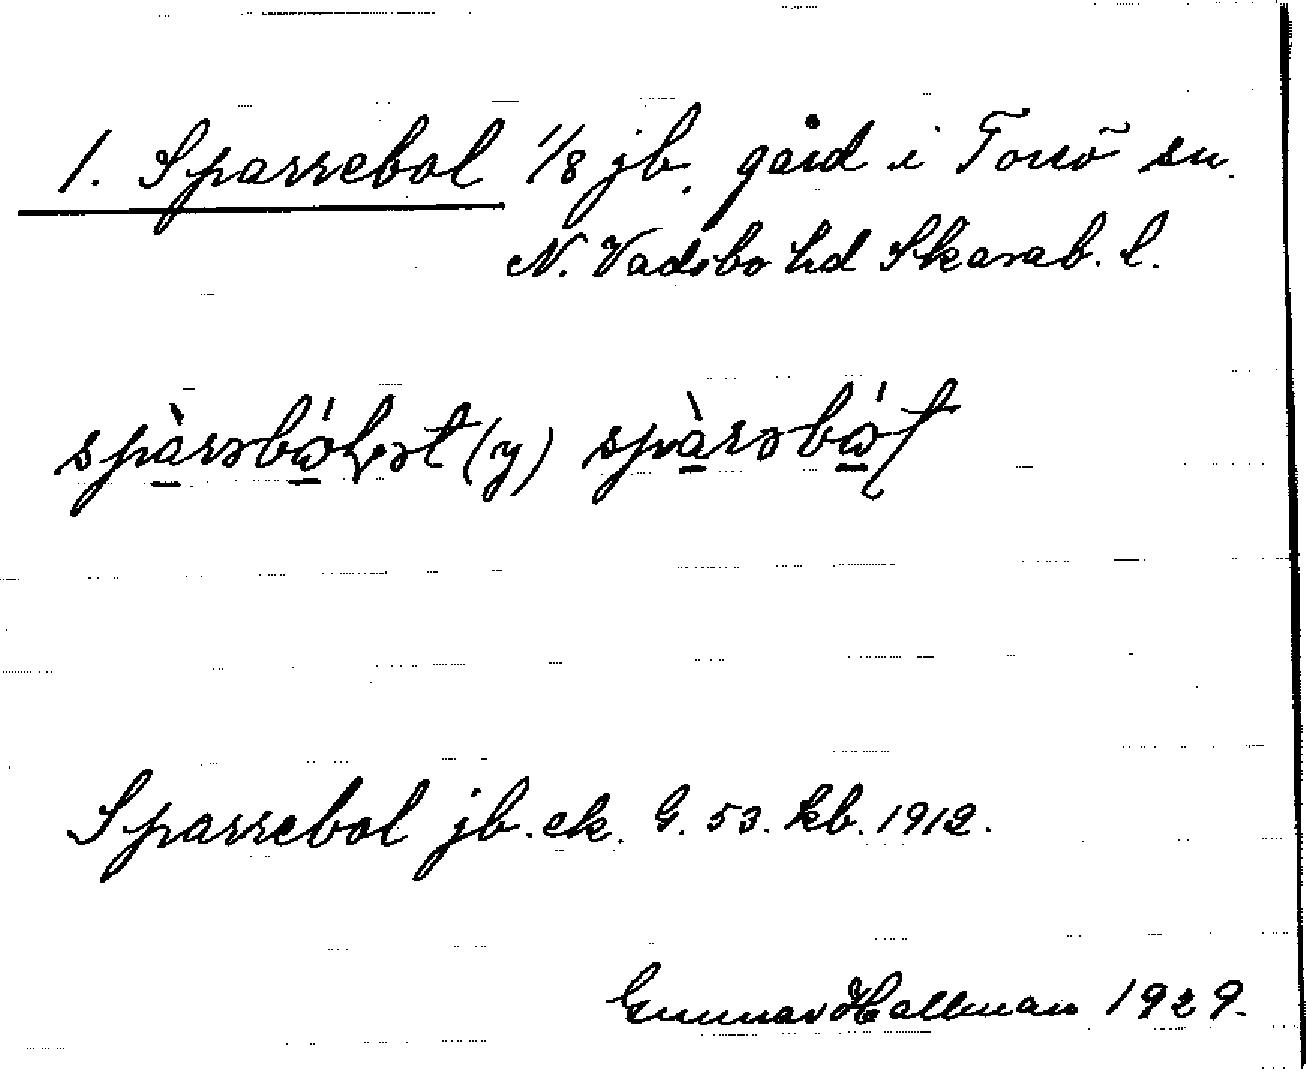 1. Sparrebol 1/8 jb. gård i Torsö sn.
N. Vadsbo hd Skarab. l.
(y)
Sparrebol jb. ek. G. 53. kb. 1912.
Gunnar Hallman 1929.